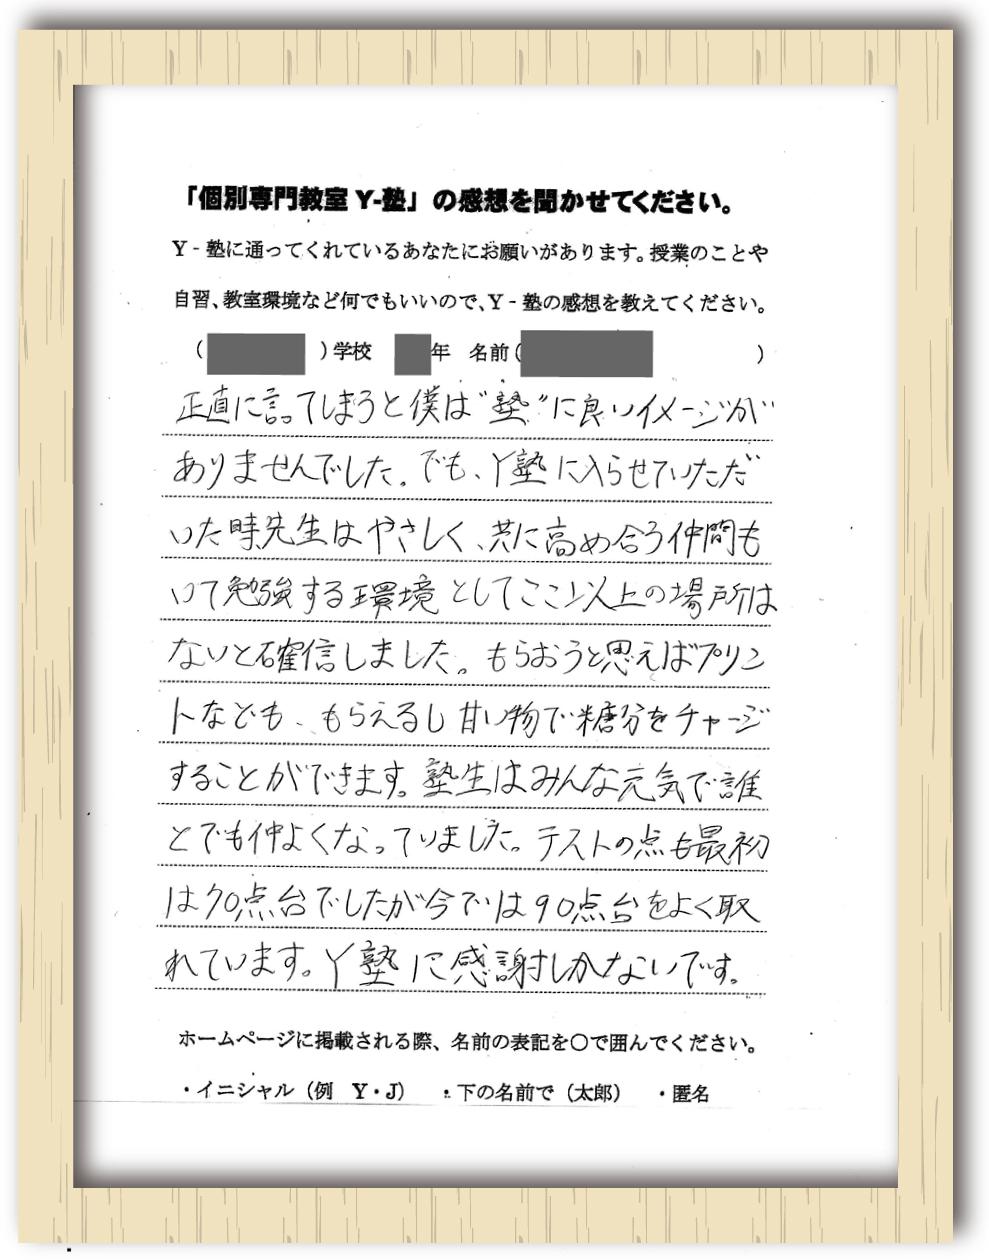 「個別専門教室 Y-塾」の感想を聞かせてください。
Y-塾に通ってくれているあなたにお願いがあります。授業のことや
自習、教室環境など何でもいいので、Y-塾の感想を教えてください。
(　　)学校　　年　名前(　　)
正直に言ってしまうと僕は"塾"に良いイメージが
ありませんでした。でも、Y塾に入らせていただ
いた時先生はやさしく、共に高め合う仲間も
いて勉強する環境としてここ以上の場所は
ないと確信しました。もらおうと思えばプリン
トなども、もらえるし甘い物で糖分をチャージ
することができます。塾生はみんな元気で誰
とでも仲よくなっていました。テストの点も最初
は70点台でしたが今では90点台をよく取
れています。Y塾に感謝しかないです。
ホームページに掲載される際、名前の表記を○で囲んでください。
・イニシャル（例　Y・J）　・下の名前で（太郎）　・匿名